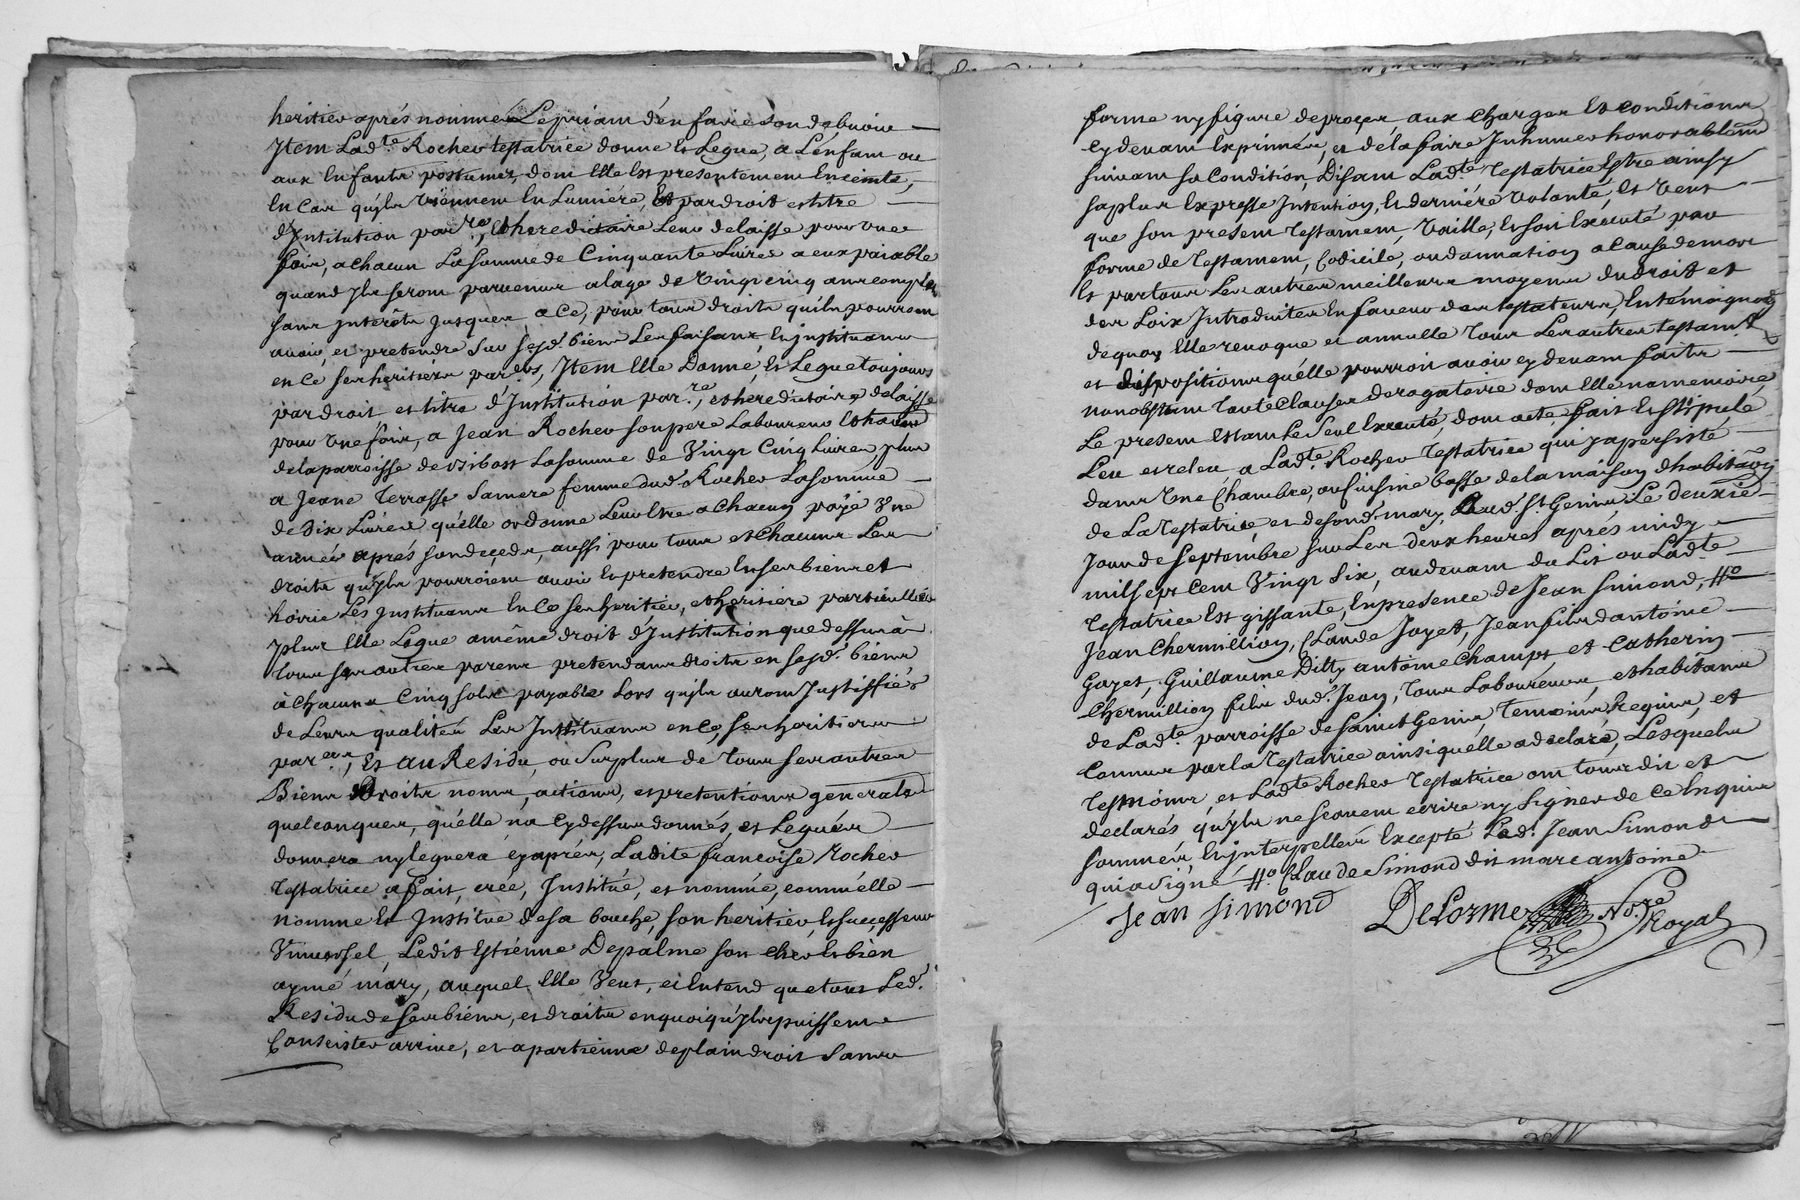 heritier aprés nommé Le priant d'en faire son debuoir
Jtem Lad.te Rocher testatrice donne Et Legue, a L'enfant ou
aux Enfants postumes, dont Elle Est presentement Enceinte,
En Cas quÿls viennent En Lumiére, Et par droit et titre
d'Institution par.re, Et hereditaire Leur delaisse pour vne
fois, a chacun La somme de Cinquante Livres a eux païable
quand Jls seront parvenus a lage de Vingt cinq ans complets
sans interêts jusques a Ce, pour tous droits qu'ils pourront
auoir, et pretendre sur sesd. biens Les faisant, Et instituant
en Ce ses heritiers par.ers, Jtem Elle Donne, Et Legue toujours
par droit et titre d'Institution par.re, et hereditaire delaisse
pour vne fois, a Jean Rocher son pere Laboureur
de la parroisse de La somme de Vingt Cinq Livres, plus
a Jeane Terrasse sa mere femme dud. Rocher La somme
de Dix Livres qu'elle ordonne Leur Estre a Chacun païé Vne
année aprés son deçeds, aussi pour tous et Chacuns Les
droits qu'jls pourroient auoir Et pretendre En ses biens et
hoirie Les Jnstituant En Ce ses heritier, et heritiere particulliers
plus Elle Legue a même droit d'Institution que dessus à
tous ses autres parens pretendans droits en sesd. biens
à Chacuns Cinq sols payable Lors qu'jls auront Justiffiés
de Leurs qualités Les Jnstituans en Ce, ses heritiers
par.ers, Et au Residu, ou Surplus de tous ses autres
Biens Droits noms, actions, et pretentions generals
quelconques, qu'elle n'a Cy dessus donnés, et Legués
donnera ny leguera cy aprés, Ladite françoise Rocher
Testatrice a fait, créé, Institué, et nommé, comm'elle
nomme Et Institue de sa bouche, son heritier, Et successeur
Vniversel, Ledit Estienne Depalme son cher Et bién
aymé mary, auquel Elle Veut, et Entend que tout Led.
Residu de ses biens, et droits en quoi qu'jls puissent
Consister arrive, et apartienne de plain droit sans
forme ny figure de proçes, aux Charges Et conditions
cy devant Exprimées, et de la faire Jnhumer honorablemt
suivant sa Condition, Disant Lad.te Testatrice Estre ainsy
sa plus Expresse Intention, Et derniére Volonté, Et Veut
que son present Testament, Vaille, Et soit Executé, par
forme de Testament, Codicile, ou donnation a Cause de mort
Et par tous Les autres meilleurs moyens du droit et
des Loix Introduites En faveur des testateurs, En témoignage
de quoy Elle revoque et annulle tous Les autres testam.ts
et dispositions qu'elle pourroit auoir cy devant faits
nonobstant toute Clauses derogatoires dont Elle n'a memoire
Le present Estant Le Seul Executé dont acte, fait Et stipulé
Leu et releu, a Lad.te Rocher Testatrice qui y a persisté
dans Vne Chambre, ou Cuisine basse de la maison d'habitãon
de La Testatrice, et de sond. mary, aud. St. Genis Le deuxié
Jour de septembre sur Les deux heures aprés midy
mil sept Cent Vingt six, au devant du Lit ou Lad.te
Testatrice Est gissante, En presence de Jean Simond,
Jean Chermillion, Claude Joyet, Jean fils d'antoine
Gayet, Guillaume Ditty antoine Champt et Catherin
Chermillion fils dud. Jean, tous Laboureurs, et habitans
de Lad.te parroisse de Sainct Genis, temoins Requis, et
Connus par la Testatrice ainsi qu'elle a declaré, Lesquels
Tesmoins, et Lad.te Rocher Testatrice ont tous dit et
declarés qu'jls ne sçavent écrire ny Signer de Ce Enquis
sommés, Et interpellés Excepté Led. Jean Simond
qui a Signé Claude Simond dit marc antoine
Jean Simond Delorme No.re
Royal